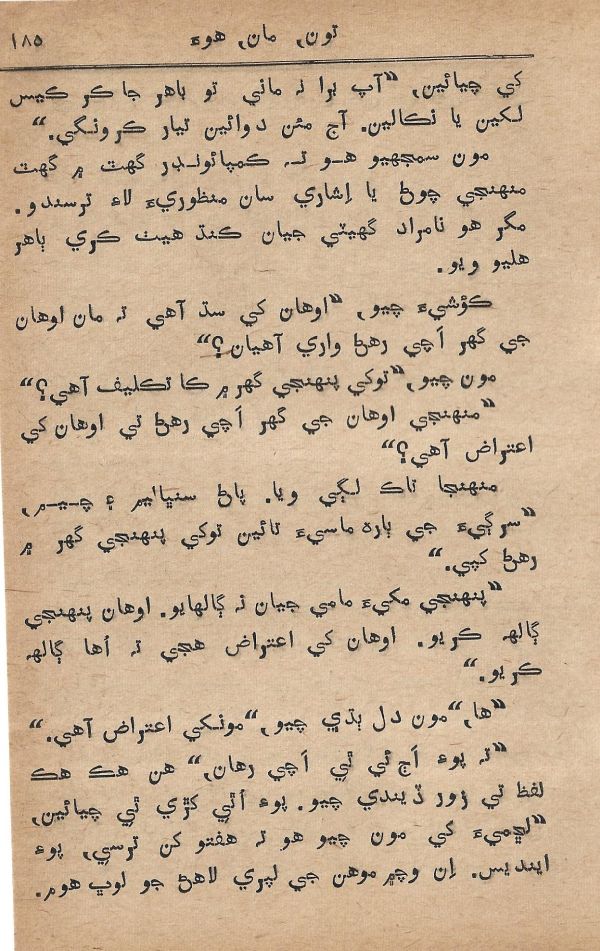 تون، مان، هوءَ ١٨٥
کي چيائين، ”آپ برا نہ ماني تو باهر جاڪر ڪيس
لکين يا نڪالين. آج مئن دوائين تيار ڪرونگي.“
مون سمجهيو هو تہ ڪمپائونڊر گهٽ ۾ گهٽ
منهنجي چوڻ يا اِشاري سان منظوريءَ لاءِ ترسندو.
مگر هو نامراد گهيٽي جيان ڪنڌ هيٺ ڪري ٻاهر
هليو ويو.
ڪؤشيءَ چيو، ”اوهان کي سڌ آهي تہ مان اوهان
جي گهر اَچي رهڻ واري آهيان؟“
مون چيو،”توکي پنهنجي گهر ۾ ڪا تڪليف آهي؟“
”منهنجي اوهان جي گهر اَچي رهڻ تي اوهان کي
اعتراض آهي؟“
منهنجا تاڪ لڳي ويا. پاڻ سنڀاليم ۽ چيم،
”سرڳيءَ جي ٻارہ ماسيءَ تائين توکي پنهنجي گهر ۾
رهڻ کپي.“
”پنهنجي مکيءَ مامي جيان نہ ڳالهايو. اوهان پنهنجي
ڳالهہ ڪريو. اوهان کي اعتراض هجي تہ اُها ڳالهہ
ڪريو.“
”ها،“مون دل ٻڌي چيو،”مونکي اعتراض آهي.“
”تہ پوءِ اَڄ ئي ٿي اَچي رهان،“ هن هڪ هڪ
لفظ تي زور ڏيندي چيو. پوءِ اُٿي کڙي ٿي چيائين،
”لڇميءَ کي مون چيو هو تہ هفتو کن ترسي، پوءِ
اينديس. اِن وچ ۾ موهن جي لپري لاهڻ جو لوڀ هوم.